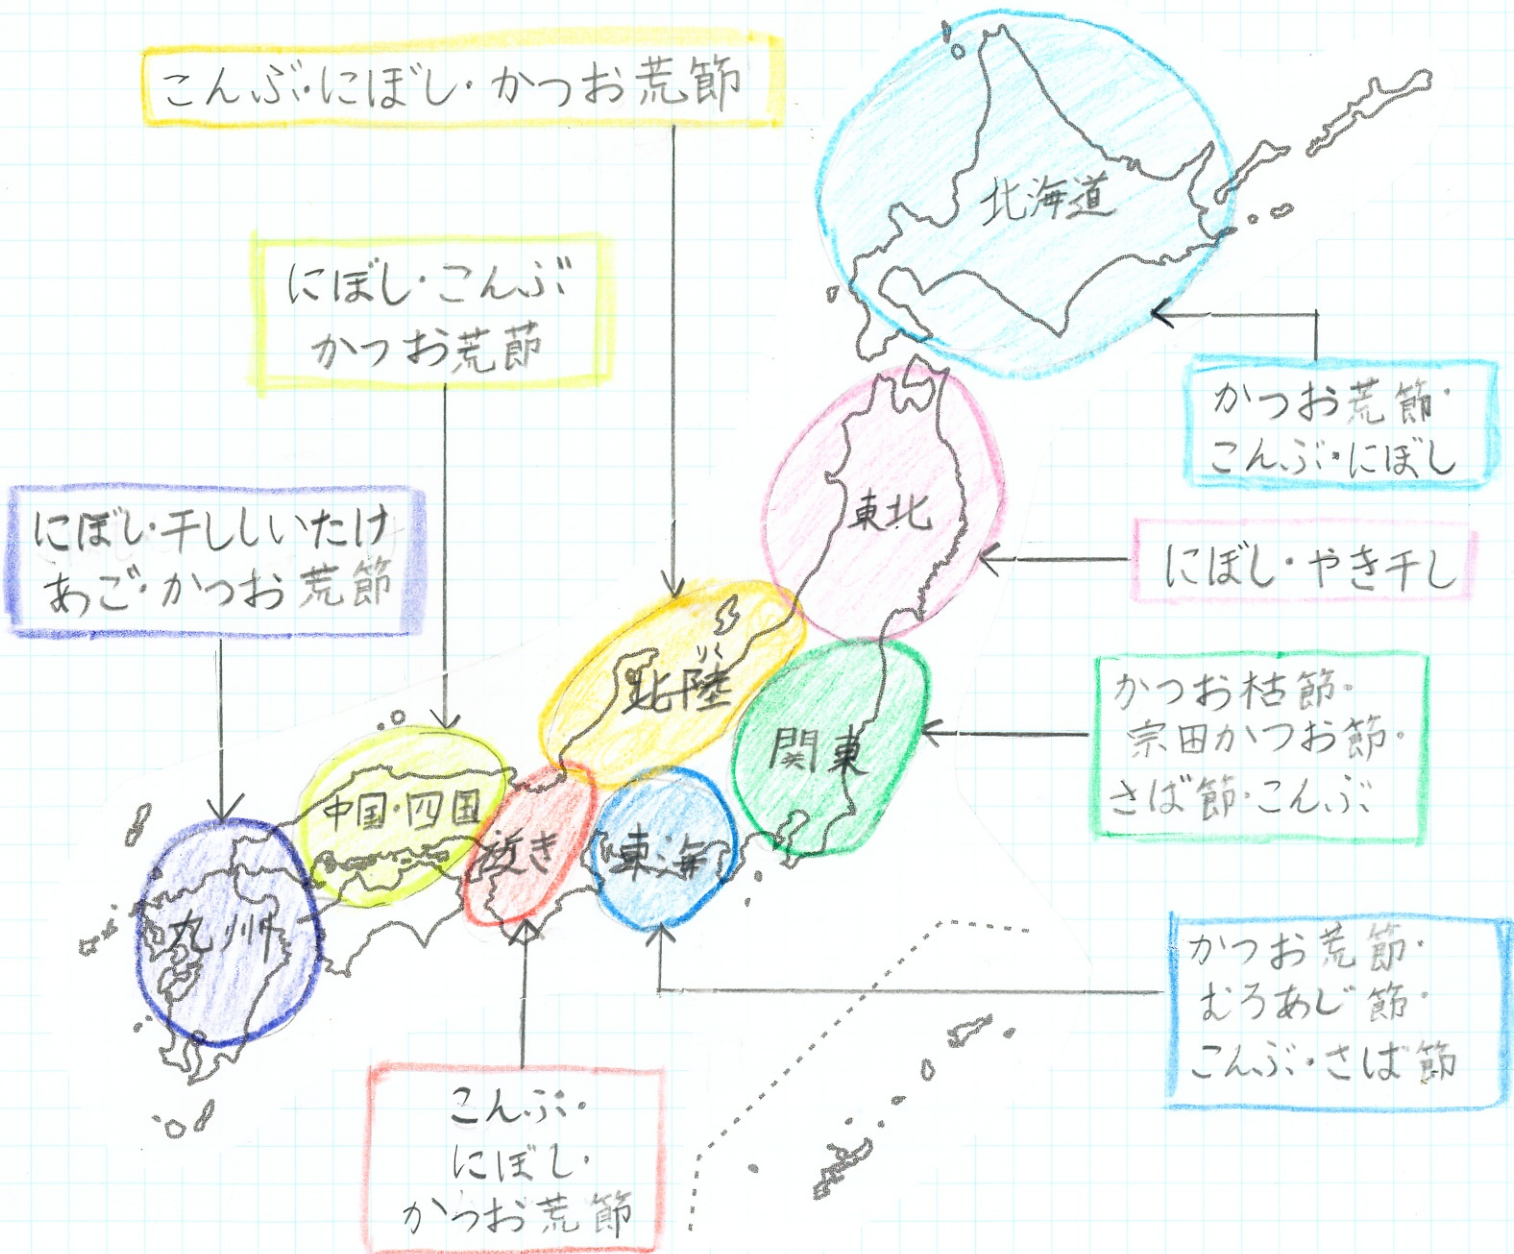 こんぶ・にぼし・かつお荒節
北海道
にぼし・こんぶ
かつお荒節
かつお荒節・
こんぶ・にぼし
にぼし・干ししいたけ
あご・かつお荒節
東北
にぼし・やき干し
りく
北陸
かつお枯節・
宗田かつお節・
さば節・こんぶ
関東
中国・四国
近き
東海
九州
かつお荒節・
むろあじ節・
こんぶ・さば節
こんぶ・
にぼし・
かつお荒節